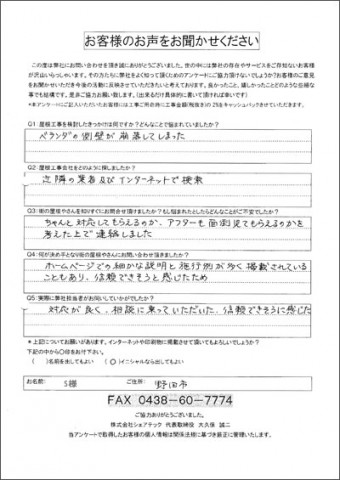 お客様のお声をお聞かせください
この度は弊社にお問い合わせを頂き誠にありがとうございました。世の中には弊社の存在やサービスをご存知ないお客様が
沢山いらっしゃいます。その方たちに弊社をよく知って頂くためのアンケートにご協力頂けないでしょうか?お客様のご意見
をお聞かせいただき今後の活動に反映させていただきたいと考えております。良かったこと、嬉しかったことのような些細な
事でも結構です。是非ご協力お願い致します。(出来るだけ具体的に書いて頂ければ幸いです)
*本アンケートにご記入いただいたお客様には工事ご用命時に工事金額(税抜き)の2%をキャッシュバックさせていただきます。
Q1.屋根工事を検討したきっかけは何ですか?どんなことで悩まれていましたか?
ベランダの側壁が崩落してしまった
Q2.屋根工事会社をどのように探しましたか?
近隣の業者及びインターネットで検索
Q3.街の屋根やさんを知りすぐにお問合せ頂けましたか?もし悩まれたとしたらどんなことがご不安でしたか?
ちゃんと対応してもらえるのか、アフターも面倒見てもらえるのかを
考えた上で連絡しました
Q4.何が決め手となり街の屋根やさんにお問い合わせ頂きましたか?
ホームページでの細かな説明と施行例が多く掲載されている
こともあり、信頼できそうと感じたため
Q5.実際に弊社担当者がお伺いしていかがでしたか?
対応が良く、相談に乗っていただいた、信頼できそうに感じた
*上記についてお願いがあります。インターネットや印刷物に掲載させて頂いてもよろしいでしょうか?
下記の中から〇印をお付け下さい。
( )名前を出してもよい (〇)イニシャルなら出してもよい
お名前: S様 ご住所: 野田市
FAX 0438-60-7774
ご協力ありがとうございました。
株式会社シェアテック 代表取締役 大久保 誠二
当アンケートで取得したお客様の個人情報は関係法規に基づき厳正に管理いたします。